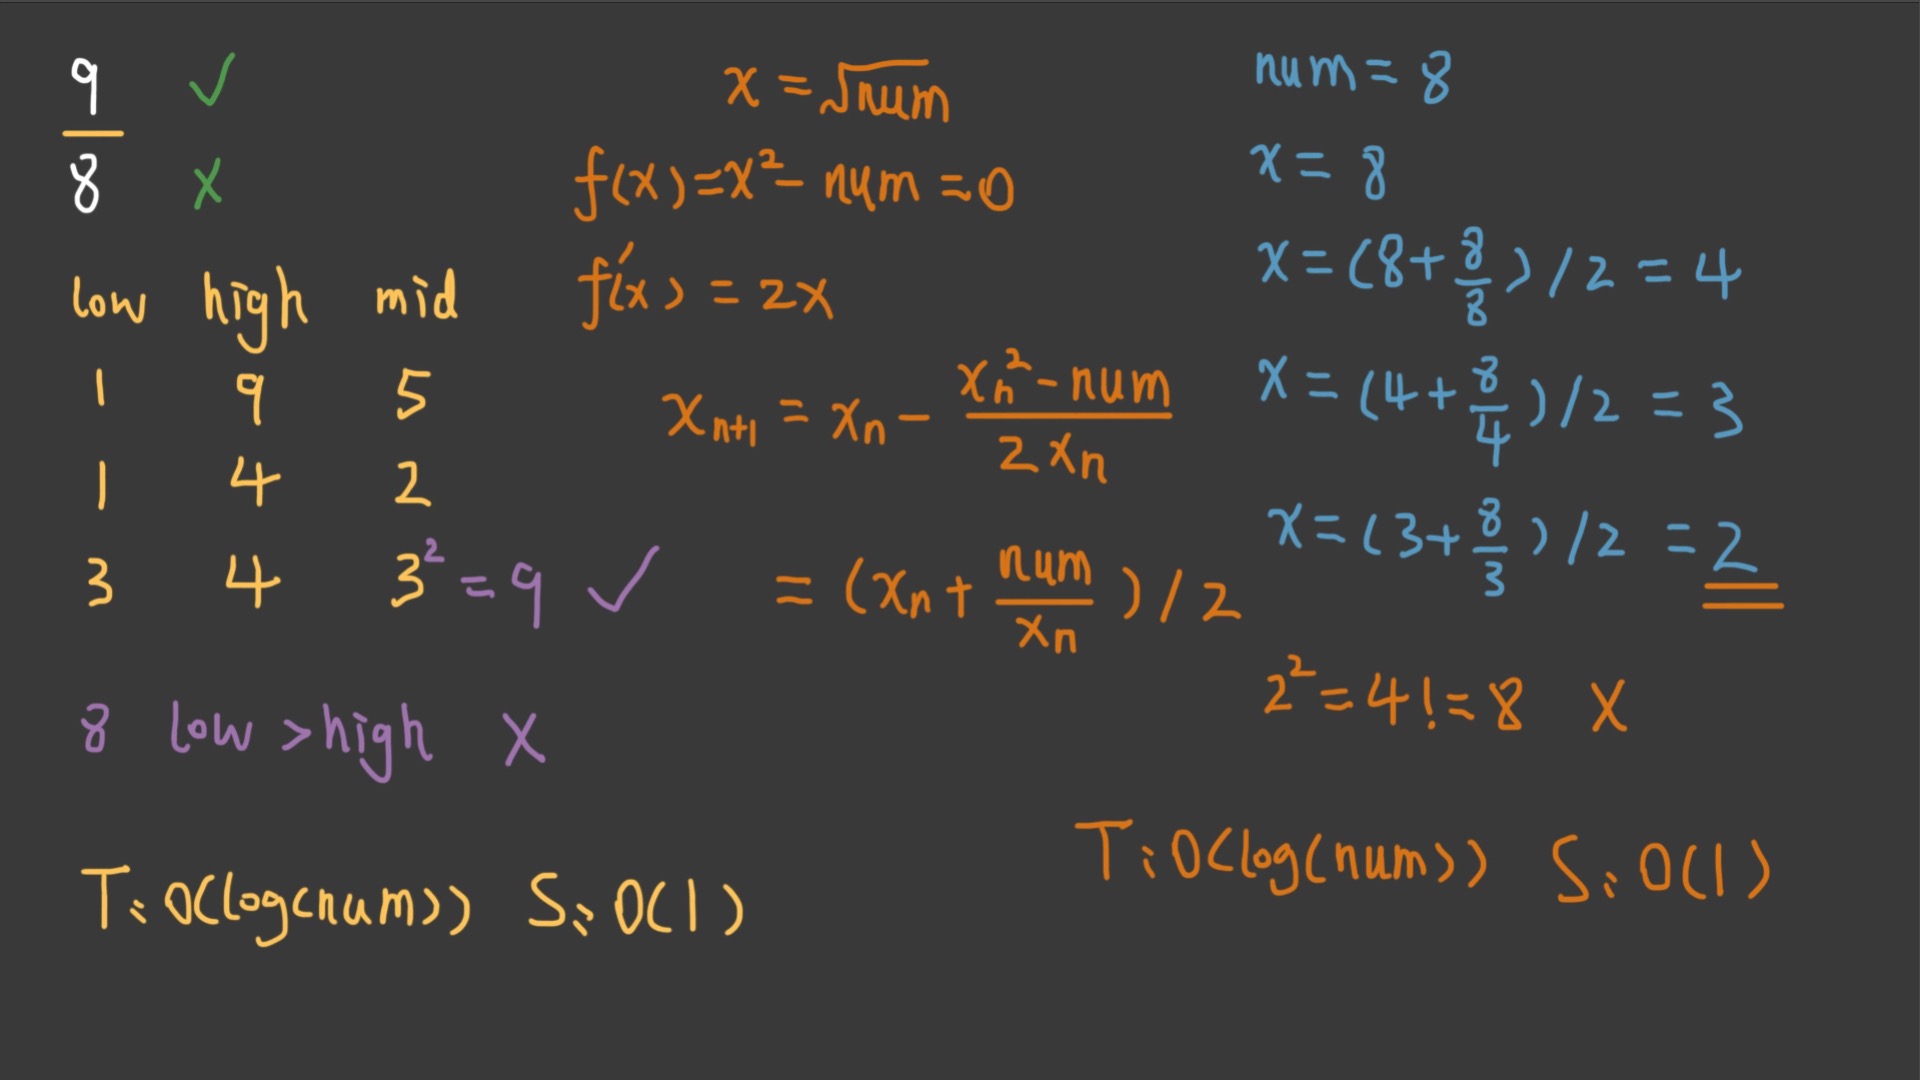 9 ✓
8 x
low high mid
1 9 5
1 4 2
3 4 3² = 9 ✓
8 low > high X
T: O(log(num)) S: O(1)
x = √num
f(x) = x² - num = 0
f'(x) = 2x
xₙ₊₁ = xₙ - (xₙ² - num) / 2xₙ
= (xₙ + num/xₙ) / 2
num = 8
x = 8
x = (8 + 8/8) / 2 = 4
x = (4 + 8/4) / 2 = 3
x = (3 + 8/3) / 2 = 2
2² = 4 != 8 X
T: O(log(num)) S: O(1)